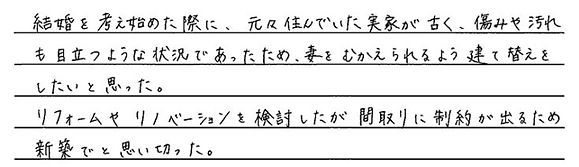 結婚を考え始めた際に、元々住んでいた実家が古く、傷みや汚れ
も目立つような状況であったため、妻をむかえられるよう建て替えを
したいと思った。
リフォームやリノベーションを検討したが間取りに制約が出るため
新築でと思い切った。